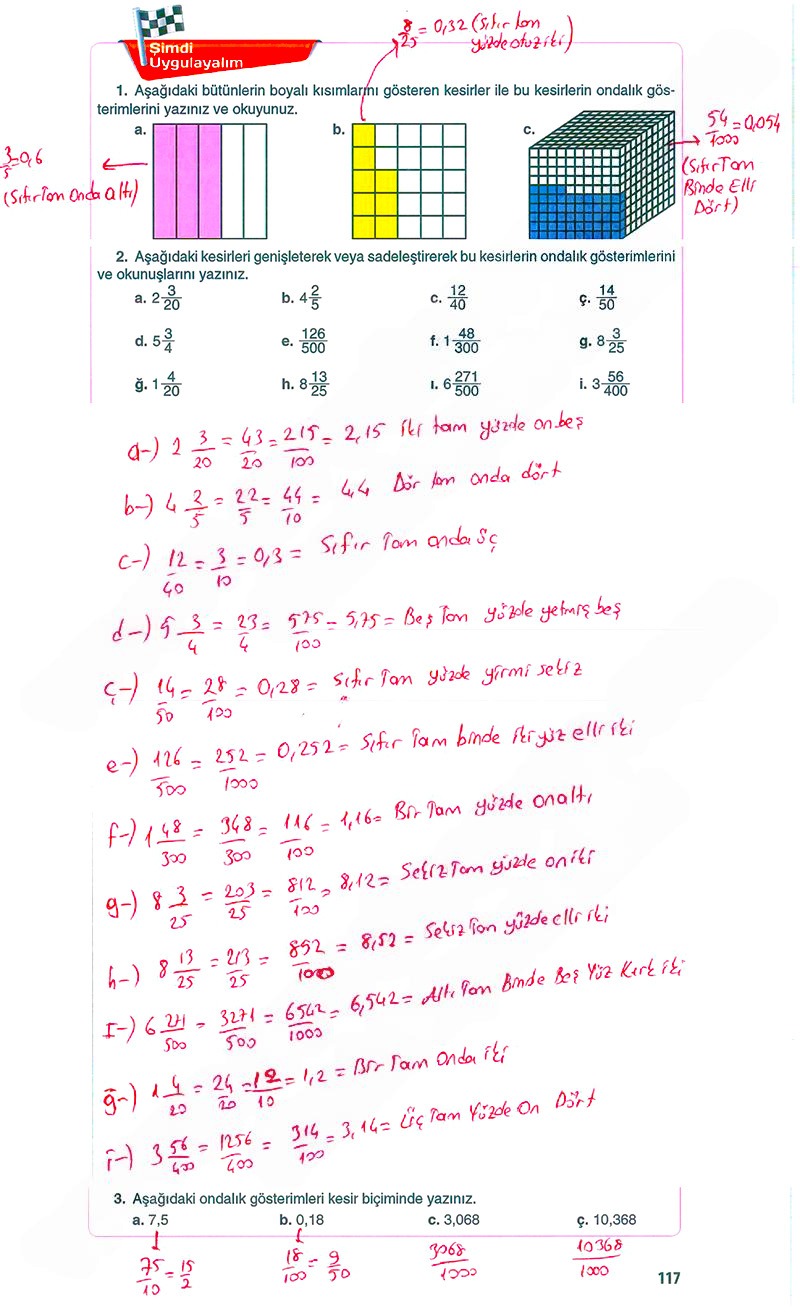 8/25 = 0,32 (Sıfır tam
yüzde otuz iki)
Şimdi
Uygulayalım
1. Aşağıdaki bütünlerin boyalı kısımlarını gösteren kesirler ile bu kesirlerin ondalık gös-
terimlerini yazınız ve okuyunuz.
a. b. c.
3/5=0,6
(Sıfır Tam Onda altı)
54/1000=0,054
(Sıfır Tam
Binde Elli
Dört)
2. Aşağıdaki kesirleri genişleterek veya sadeleştirerek bu kesirlerin ondalık gösterimlerini
ve okunuşlarını yazınız.
a. 2 3/20 b. 4 2/5 c. 12/40 ç. 14/50
d. 5 3/4 e. 126/500 f. 1 48/300 g. 8 3/25
ğ. 1 4/20 h. 8 13/25 ı. 6 271/500 i. 3 56/400
a-) 2 3/20 = 43/20 = 215/100 = 2,15 iki tam yüzde on beş
b-) 4 2/5 = 22/5 = 44/10 = 4,4 Dör tam onda dört
c-) 12/40 = 3/10 = 0,3 = Sıfır Tam onda üç
d-) 5 3/4 = 23/4 = 575/100 = 5,75 = Beş Tam yüzde yetmiş beş
ç-) 14/50 = 28/100 = 0,28 = Sıfır Tam yüzde yirmi sekiz
e-) 126/500 = 252/1000 = 0,252 = Sıfır Tam binde iki yüz elli iki
f-) 1 48/300 = 348/300 = 116/100 = 1,16 = Bir Tam yüzde on altı
g-) 8 3/25 = 203/25 = 812/100 = 8,12 = Sekiz Tam yüzde on iki
h-) 8 13/25 = 213/25 = 852/100 = 8,52 = Sekiz Tam yüzde elli iki
I-) 6 271/500 = 3271/500 = 6542/1000 = 6,542 = Altı Tam Binde Beş Yüz Kırk iki
ğ-) 1 4/20 = 24/20 = 12/10 = 1,2 = Bir Tam Onda iki
i-) 3 56/400 = 1256/400 = 314/100 = 3,14 = Üç Tam Yüzde On Dört
3. Aşağıdaki ondalık gösterimleri kesir biçiminde yazınız.
a. 7,5 b. 0,18 c. 3,068 ç. 10,368
75/10 = 15/2 18/100 = 9/50 3068/1000 10368/1000
117